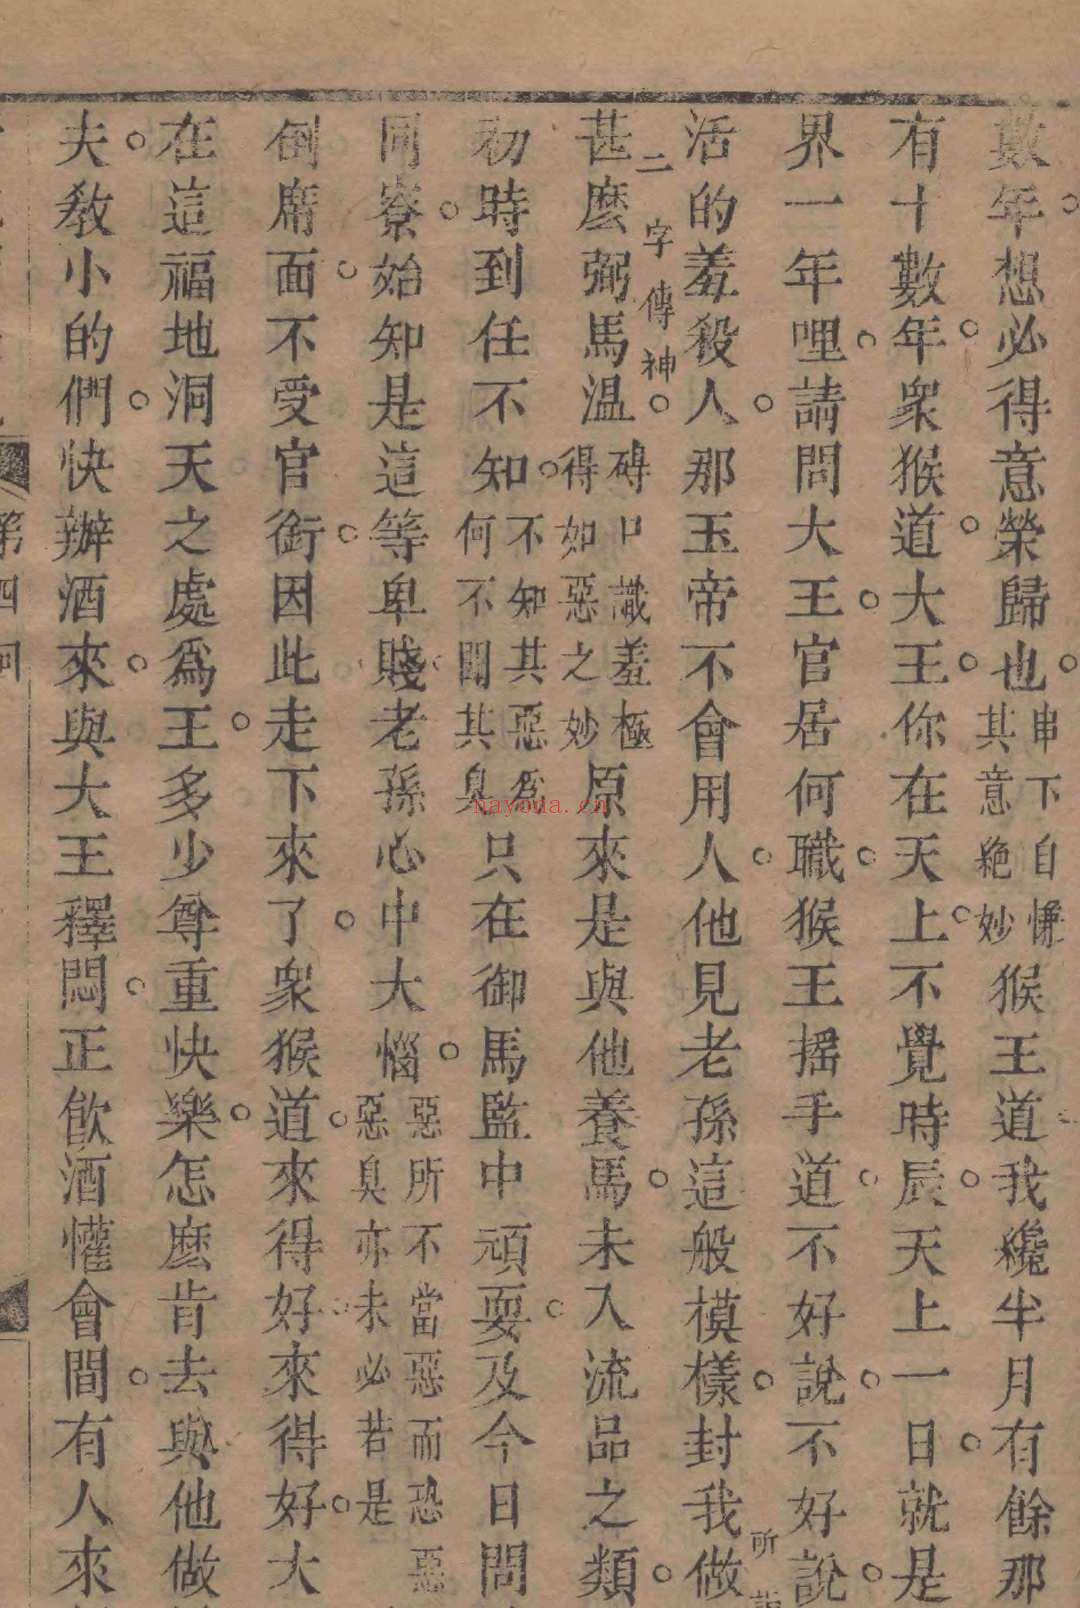 數年想必得意榮歸也串下自慊其意絶妙猴王道我纔半月有餘那
有十數年衆猴道大王你在天上不覺時辰天上一日就是
界一年哩請問大王官居何職猴王摇手道不好說不好說
活的羞殺人那玉帝不會用人他見老孫這般模樣封我做
所
二字傳神
甚麽弼馬温碍口識羞極得如惡之妙原來是與他養馬未入流品之類
初時到任不知不知其惡爲何不聞其臭只在御馬監中頑耍及今日問
同寮始知是這等卑賤老孫心中大惱惡所不當惡而恐惡惡臭亦未必若是
倒席面不受官銜因此走下來了衆猴道來得好來得好大
在這福地洞天之處爲王多少尊重快樂怎麽肯去與他做
夫教小的們快辦酒來與大王釋悶正飲酒懽會間有人來
第四回
nayoda.cn